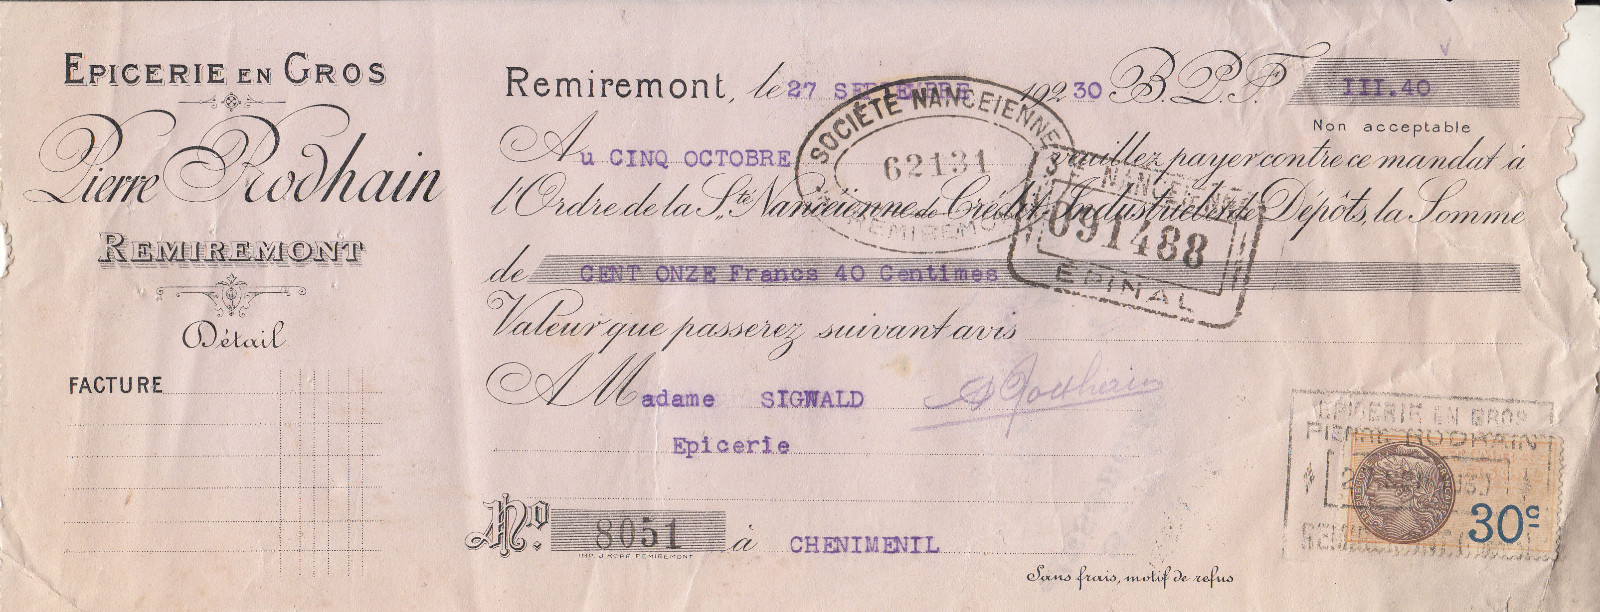 EPICERIE EN GROS
Pierre Rodhain
REMIREMONT
Détail
FACTURE
Remiremont, le 27 SEPTEMBRE 192 30 B.P.F. III.40
Non acceptable
Au CINQ OCTOBRE veuillez payer contre ce mandat à
l'Ordre de la Sté Nancéienne de Crédit Industriel et de Dépôts, la Somme
de CENT ONZE Francs 40 Centimes
Valeur que passerez suivant avis
A Madame SIGWALD
Epicerie
No. 8051 à CHENIMENIL
IMP. J. KOPF REMIREMONT
Sans frais, motif de refus
SOCIÉTÉ NANCEIENNE
62131
REMIREMONT
STE NANCÉIENNE
091488
ÉPINAL
Rodhain
EPICERIE EN GROS
PIERRE RODHAIN
REMIREMONT
30c